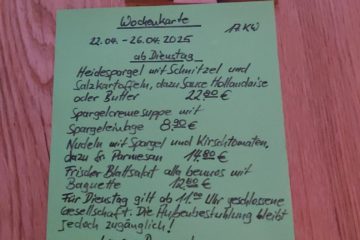 Wochenkarte
17. KW
22.04. - 26.04.2025
ab Dienstag
Heidespargel mit Schnitzel und
Salzkartoffeln, dazu Sauce Hollandaise
oder Butter 22,00 €
Spargelcremesuppe mit
Spargeleinlage 8,90 €
Nudeln mit Spargel und Kirschtomaten,
dazu Parmesan 14,80 €
Frischer Blattsalat
Baguette 12,80 €
Für Dienstag gilt ab 11.00 Uhr geschlossene
Gesellschaft. Die Außenbestuhlung bleibt
jedoch zugänglich!